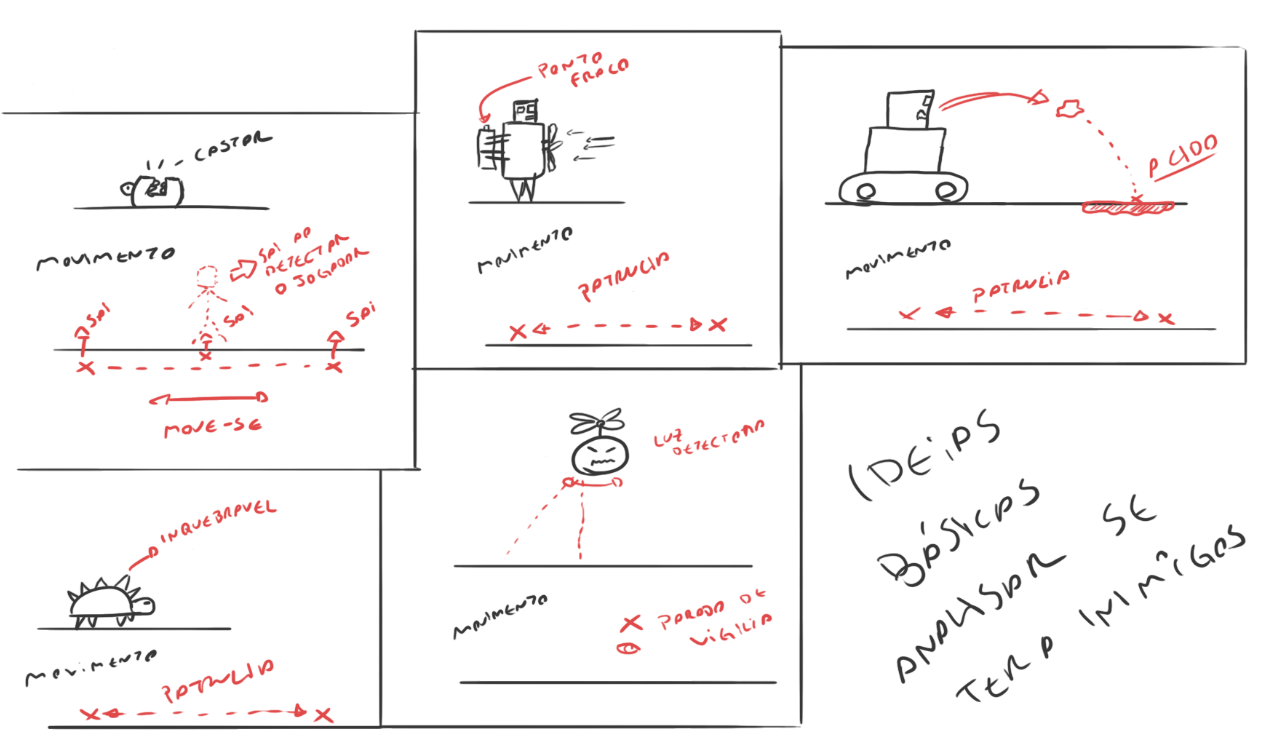 CASTOR
MOVIMENTO
SAI AO
DETECTAR
O JOGADOR
SAI
SAI
SAI
MOVE-SE
PONTO
FRACO
MOVIMENTO
PATRULIA
ACIDO
MOVIMENTO
PATRULIA
INQUEBRAVEL
MOVIMENTO
PATRULIA
LUZ
DETECTORA
MOVIMENTO
PARADA DE
VIGILIA
IDEIAS
BÁSICAS
ANALISAR SE
TERA INIMIGOS